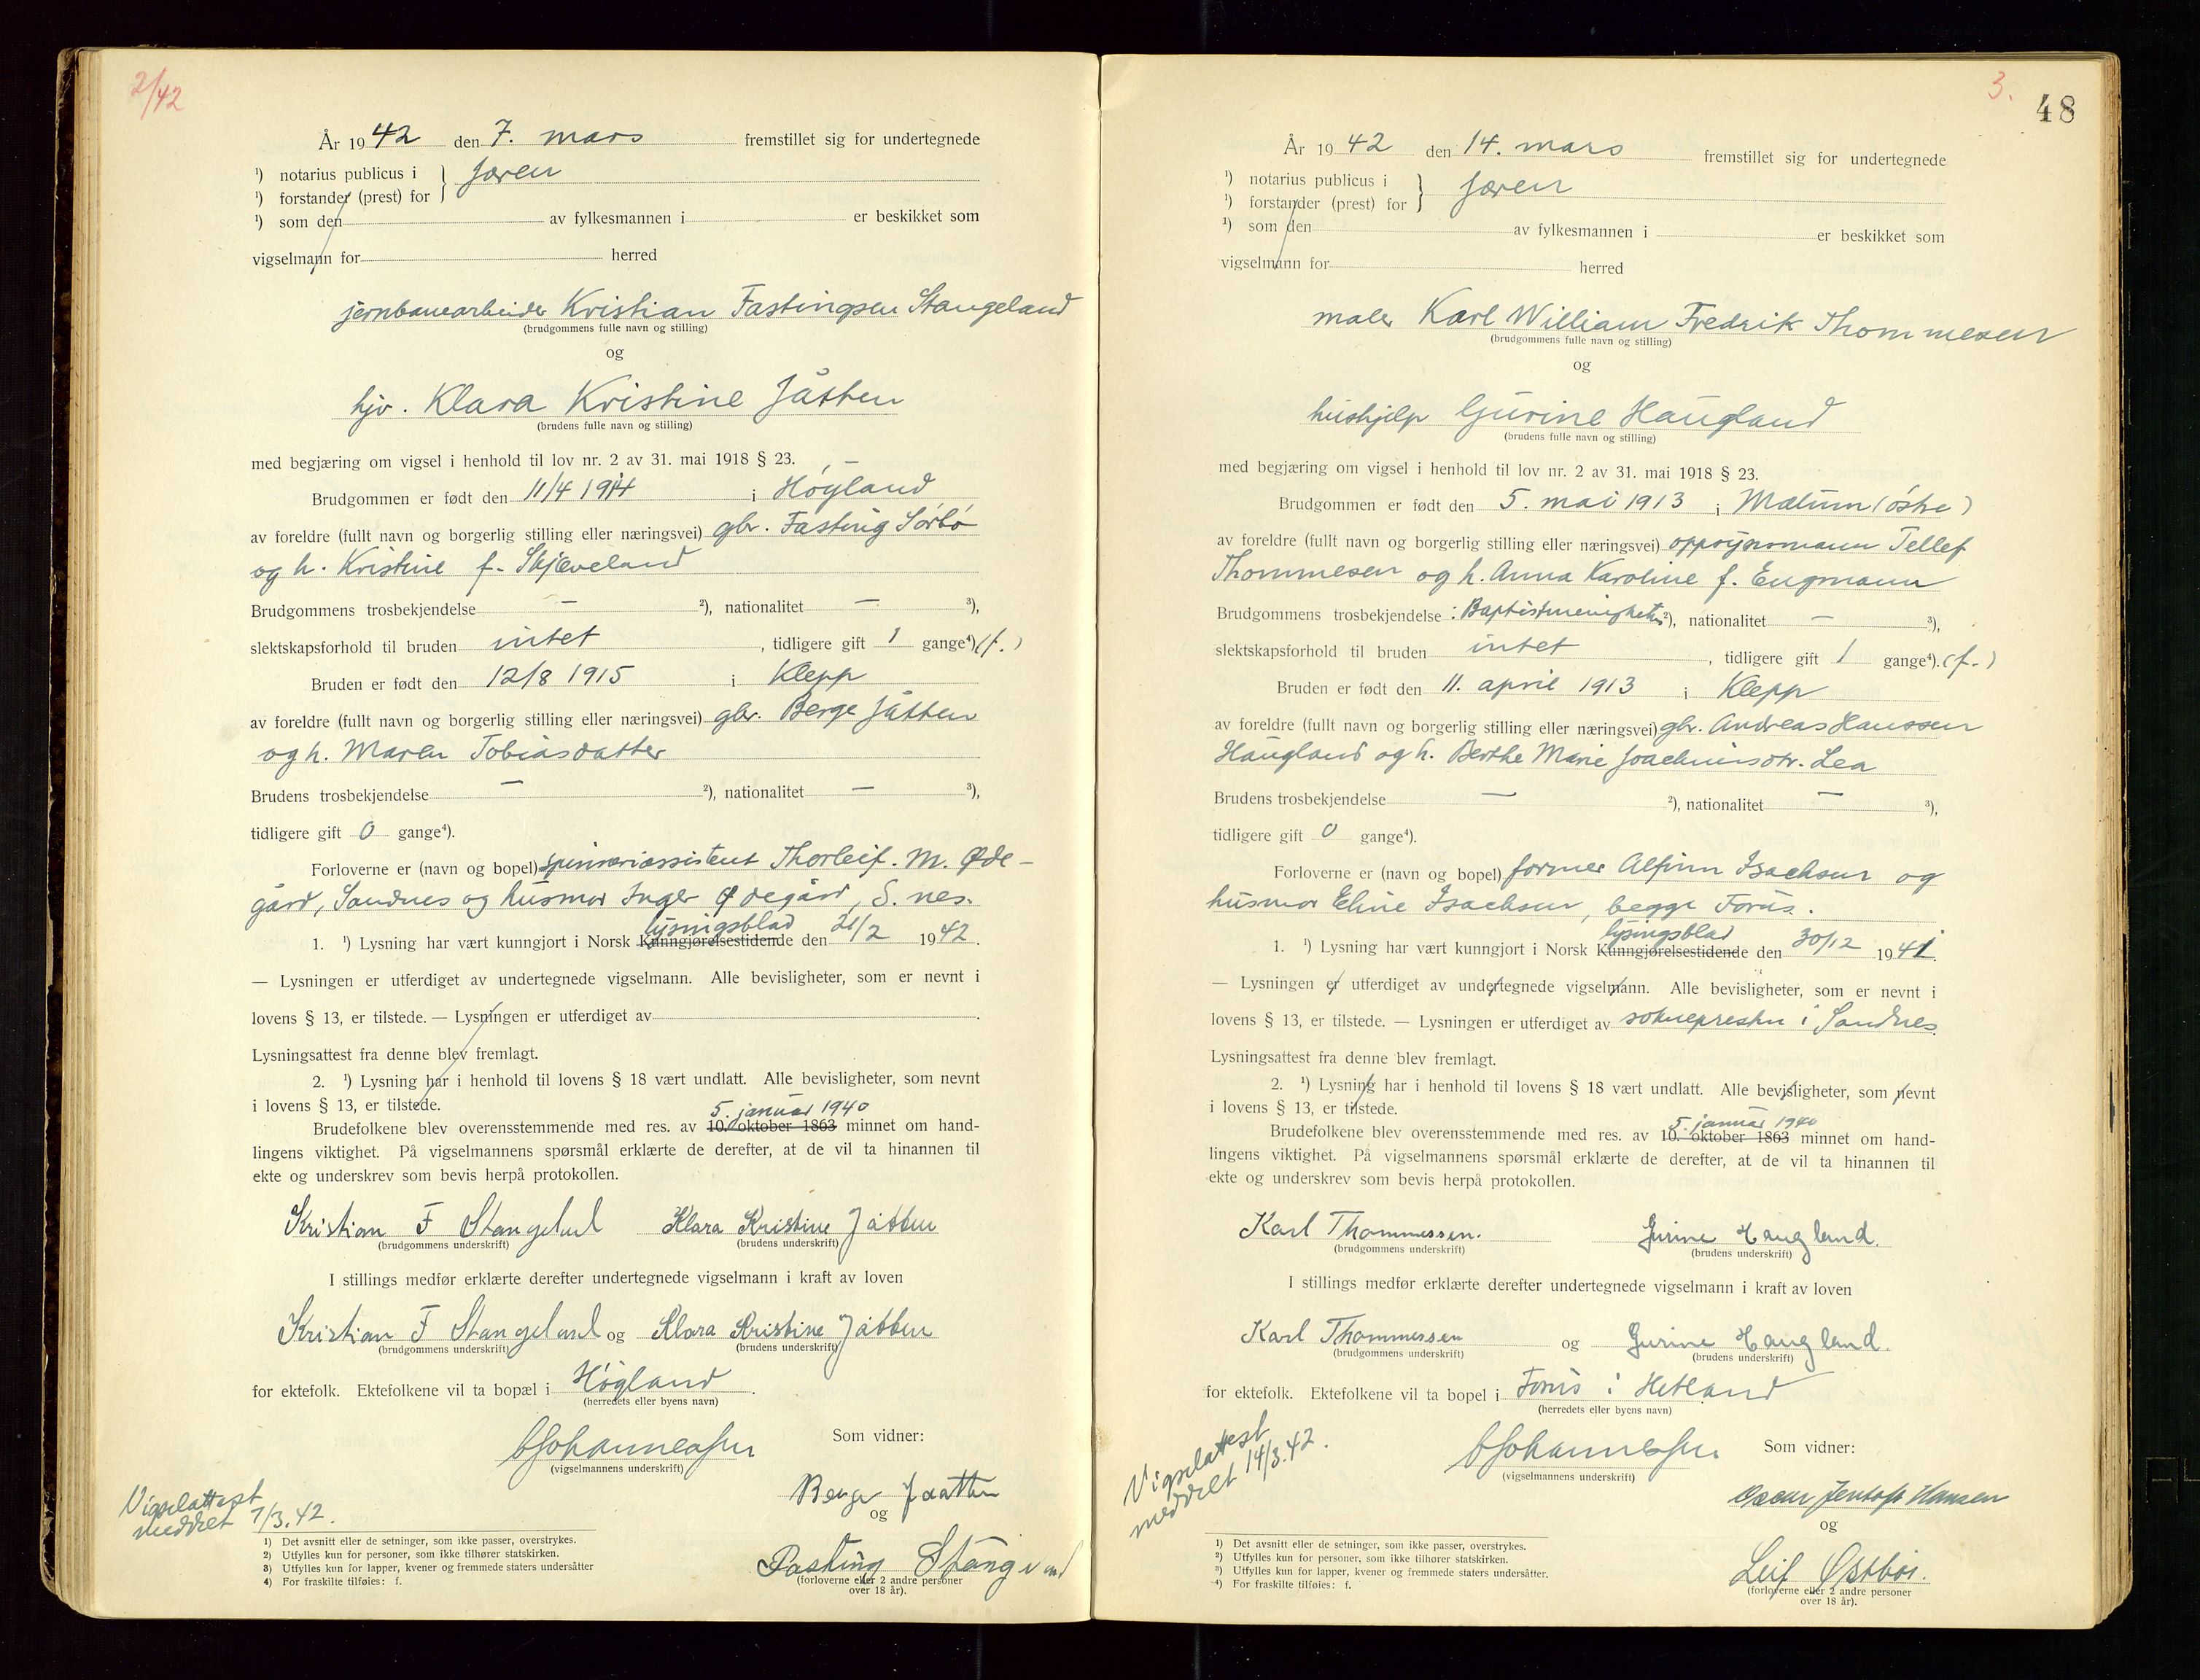 2/42
År 1942 den 7. mars fremstillet sig for undertegnede
¹) notarius publicus i } Jæren
¹) forstander (prest) for
¹) som den av fylkesmannen i er beskikket som
vigselmann for herred
jernbanearbeider Kristian Fastingsen Stangeland
(brudgommens fulle navn og stilling)
og
hjv. Klara Kristine Jåtten
(brudens fulle navn og stilling)
med begjæring om vigsel i henhold til lov nr. 2 av 31. mai 1918 § 23.
Brudgommen er født den 11/4 1914 i Høyland
av foreldre (fullt navn og borgerlig stilling eller næringsvei) gbr. Fasting Sørbø
og h. Kristine f. Skjæveland
Brudgommens trosbekjendelse — ²), nationalitet — ³),
slektskapsforhold til bruden intet, tidligere gift 1 gange⁴) (f.)
Bruden er født den 12/8 1915 i Klepp
av foreldre (fullt navn og borgerlig stilling eller næringsvei) gbr. Berge Jåtten
og h. Maren Tobiasdatter
Brudens trosbekjendelse — ²), nationalitet — ³),
tidligere gift 0 gange⁴).
Forloverne er (navn og bopel) spinneriassistent Thorleif. M. Øde-
gård, Sandnes og husmor Inger Ødegård, S. nes.
lysingsblad
1. ¹) Lysning har vært kunngjort i Norsk Kunngjørelsestidende den 21/2 1942.
— Lysningen er utferdiget av undertegnede vigselmann. Alle bevisligheter, som er nevnt i
lovens § 13, er tilstede. — Lysningen er utferdiget av .
Lysningsattest fra denne blev fremlagt.
2. ¹) Lysning har i henhold til lovens § 18 vært undlatt. Alle bevisligheter, som nevnt
i lovens § 13, er tilstede.
5. januar 1940
Brudefolkene blev overensstemmende med res. av 10. oktober 1863 minnet om hand-
lingens viktighet. På vigselmannens spørsmål erklærte de derefter, at de vil ta hinannen til
ekte og underskrev som bevis herpå protokollen.
Kristian F Stangeland Klara Kristine Jåtten
(brudgommens underskrift) (brudens underskrift)
I stillings medfør erklærte derefter undertegnede vigselmann i kraft av loven
Kristian F Stangeland og Klara Kristine Jåtten
(brudgommens underskrift) (brudens underskrift)
for ektefolk. Ektefolkene vil ta bopæl i Høgland.
(herredets eller byens navn)
Johannessen
(vigselmannens underskrift)
Som vidner:
Berge Jaatten
og
Fasting Stangeland
(forloverne eller 2 andre personer
over 18 år).
Vigselattest
meddelt 7/3.42.
1) Det avsnitt eller de setninger, som ikke passer, overstrykes.
2) Utfylles kun for personer, som ikke tilhører statskirken.
3) Utfylles kun for lapper, kvener og fremmede staters undersåtter
4) For fraskilte tilføies: f.
3.
48
År 1942 den 14. mars fremstillet sig for undertegnede
¹) notarius publicus i } Jæren
¹) forstander (prest) for
¹) som den av fylkesmannen i er beskikket som
vigselmann for herred
maler Karl William Fredrik Thommesen
(brudgommens fulle navn og stilling)
og
hushjelp Gurine Haugland
(brudens fulle navn og stilling)
med begjæring om vigsel i henhold til lov nr. 2 av 31. mai 1918 § 23.
Brudgommen er født den 5. mai 1913 i Mælum (østre)
av foreldre (fullt navn og borgerlig stilling eller næringsvei) oppsynsmann Tellef
Thommesen og h. Anna Karoline f. Engmann
Brudgommens trosbekjendelse : Baptistmenigheten ²), nationalitet — ³),
slektskapsforhold til bruden intet, tidligere gift 1 gange⁴). (f.)
Bruden er født den 11. april 1913 i Klepp
av foreldre (fullt navn og borgerlig stilling eller næringsvei) gbr. Andreas Hanssen
Haugland og h. Berthe Marie Joachimsdtr. Lea
Brudens trosbekjendelse — ²), nationalitet — ³),
tidligere gift 0 gange⁴).
Forloverne er (navn og bopel) former Alfinn Isachsen og
husmor Eline Isachsen, begge Forus.
lysingsblad
1. ¹) Lysning har vært kunngjort i Norsk Kunngjørelsestidende den 30/12 1941.
— Lysningen er utferdiget av undertegnede vigselmann. Alle bevisligheter, som er nevnt i
lovens § 13, er tilstede. — Lysningen er utferdiget av sokneprestn i Sandnes.
Lysningsattest fra denne blev fremlagt.
2. ¹) Lysning har i henhold til lovens § 18 vært undlatt. Alle bevisligheter, som nevnt
i lovens § 13, er tilstede.
5. januar 1940
Brudefolkene blev overensstemmende med res. av 10. oktober 1863 minnet om hand-
lingens viktighet. På vigselmannens spørsmål erklærte de derefter, at de vil ta hinannen til
ekte og underskrev som bevis herpå protokollen.
Karl Thommessen. Gurine Haugland.
(brudgommens underskrift) (brudens underskrift)
I stillings medfør erklærte derefter undertegnede vigselmann i kraft av loven
Karl Thommessen og Gurine Haugland.
(brudgommens underskrift) (brudens underskrift)
for ektefolk. Ektefolkene vil ta bopel i Forus i Hetland
(herredets eller byens navn)
Johannessen
(vigselmannens underskrift)
Som vidner:
Oscar Jentoft Hansen
og
Leif Østbø.
(forloverne eller 2 andre personer
over 18 år).
Vigselattest
meddelt 14/3.42.
1) Det avsnitt eller de setninger, som ikke passer, overstrykes.
²) Utfylles kun for personer, som ikke tilhører statskirken.
³) Utfylles kun for lapper, kvener og fremmede staters undersåtter.
⁴) For fraskilte tilføies: f.